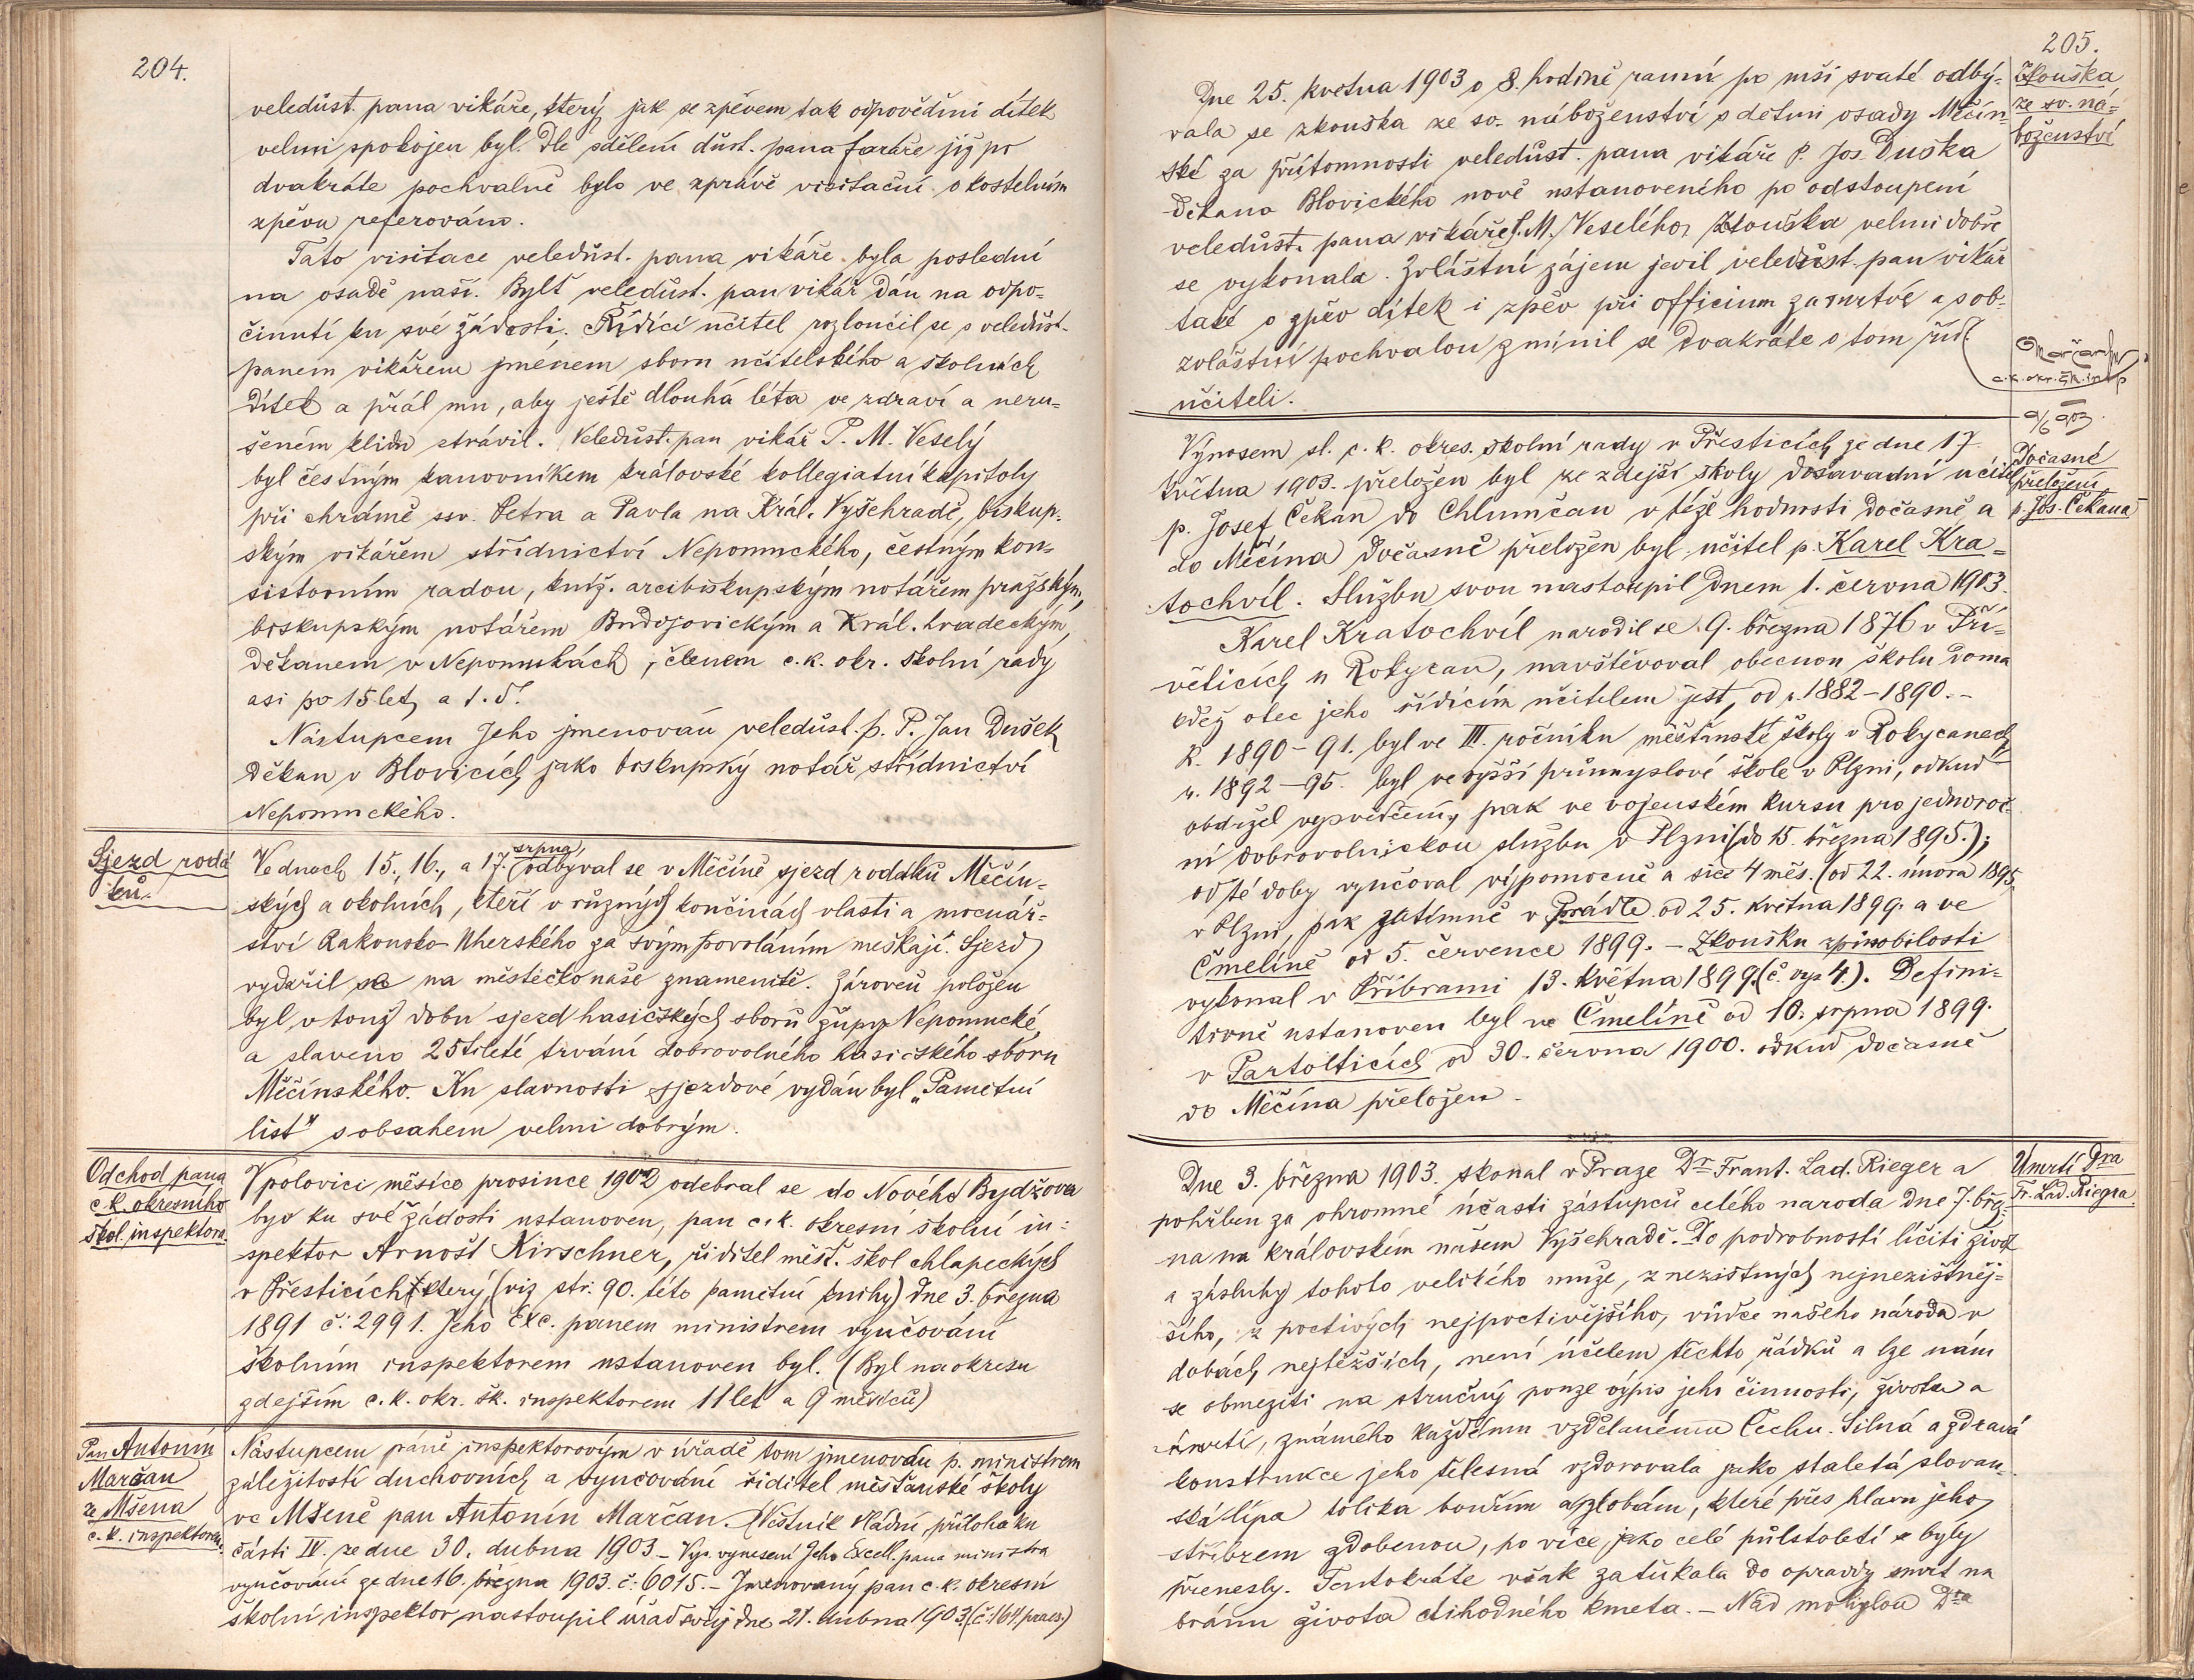 204.
veledůst. pana vikáře, který jak se zpěvem tak odpověďmi dítek
velmi spokojen byl. Dle sdělení důst. pana faráře již po
dvakráte pochvalně bylo ve zprávě visitační o kostelním
zpěvu referováno.
Tato visitace veledůst. pana vikáře byla poslední
na osadě naší. Bylť veledůst. pan vikář dán na odpo-
činutí ku své žádosti. Řídící učitel rozloučil se s veledůst.
panem vikářem jménem sboru učitelského a školních
dítek a přál mu, aby ještě dlouhá léta ve zdraví a neru-
šeném klidu strávil. Veledůst. pan vikář P. M. Veselý
byl čestným kanovníkem královské kollegiatní kapitoly
při chrámě ssv. Petra a Pavla na Král. Vyšehradě, biskup-
ským vikářem střídnictví Nepomuckého, čestným kon-
sistorním radou, kníž. arcibiskupským notářem pražským,
biskupským notářem Budojovickým a Král. hradeckým,
děkanem v Nepomukách, členem c. k. okr. školní rady
asi po 15 let, a t. d.
Nástupcem Jeho jmenován veledůst. p. P. Jan Dušek
děkan v Blovicích jako biskupský notář střídnictví
Nepomuckého.
Sjezd rodá-
ků.
srpna
Ve dnech 15., 16., a 17. odbýval se v Měčíně sjezd rodáků Měčín-
ských a okolních, kteří v různých končinách vlasti a mocnář-
ství Rakousko-Uherského za svým povoláním meškají. Sjezd
vydařil se na městečko naše znamenitě. Zároveň položen
byl v touž dobu sjezd hasičských sborů župy Nepomucké,
a slaveno 25tileté trvání dobrovolného hasičského sboru
Měčínského. Ku slavnosti sjezdové vydán byl „Pamětní
list" s obsahem velmi dobrým.
Odchod pana
c. k. okresního
škol. inspektora.
V polovici měsíce prosince 1902 odebral se do Nového Bydžova
byv ku své žádosti ustanoven, pan c. k. okresní školní in-
spektor Arnošt Kirschner, řiditel měšť. škol chlapeckých
v Přešticích, který (viz str. 90. této pamětní knihy) dne 3. března
1891 č: 2991. Jeho Exc. panem ministrem vyučování
školním inspektorem ustanoven byl. (Byl na okresu
zdejším c. k. okr. šk. inspektorem 11 let a 9 měsíců)
Pan Antonín
Marčan
ze Mšena
c. k. inspektorem.
Nástupcem páně inspektorovým v úřadě tom jmenován p. ministrem
záležitostí duchovních a vyučování řiditel měšťanské školy
ve Mšeně pan Antonín Marčan. (Věstník vládní, příloha ku
části IV. ze dne 30. dubna 1903 – Vys. vynesení Jeho Excell. pana ministra
vyučování ze dne 16. března 1903. č: 6015. – Jmenovaný pan c. k. okresní
školní inspektor nastoupil úřad svůj dne 21. dubna 1903. (č: 164 praes.)
205.
Dne 25. května 1903 o 8. hodině ranní po mši svaté odbý-
vala se zkouška ze sv. náboženství s dětmi osady Měčín-
ské za přítomnosti veledůst. pana vikáře P. Jos. Duška
děkana Blovického nově ustanoveného po odstoupení
veledůst. pana vikáře P. M. Veselého. Zkouška velmi dobře
se vykonala. Zvláštní zájem jevil veledůst. pan vikář
také o zpěv dítek i zpěv při officium za mrtvé a s ob-
zvláštní pochvalou zmínil se dvakráte o tom říd.
učiteli.
Zkouška
ze sv. ná-
boženství
Marčan
c. k. okr. šk. insp
9/6 903.
Výnosem sl. c. k. okres. školní rady v Přešticích ze dne 17.
května 1903. přeložen byl ze zdejší školy dosavadní učitel
p. Josef Čekan do Chlumčan v téže hodnosti dočasně a
do Měčína dočasně přeložen byl učitel p. Karel Kra-
tochvíl. Službu svou nastoupil dnem 1. června 1903.
Dočasné
přeložení
p. Jos. Čekana
Karel Kratochvíl narodil se 9. března 1876 v Pří-
větících u Rokycan, navštěvoval obecnou školu doma
kdež otec jeho řídícím učitelem jest, od r. 1882–1890. –
R. 1890–91. byl ve III. ročníku měšťanské školy v Rokycanech,
r. 1892–95. byl ve vyšší průmyslové škole v Plzni, odkud
obdržel vysvědčení, pak ve vojenském kursu pro jednoroč-
ní dobrovolnickou službu v Plzni (do 15. března 1895.);
od té doby vyučoval výpomocně a sice 4 měs. (od 22. února 1895
v Plzni, pak zatímně v Prádle od 25. května 1899. a ve
Čmelíně od 5. července 1899. – Zkoušku způsobilosti
vykonal v Příbrami 13. května 1899. (č. vys 4.). Defini-
tivně ustanoven byl ve Čmelíně od 10. srpna 1899.
v Partolticích od 30. června 1900. odkud dočasně
do Měčína přeložen.
Dne 3. března 1903. skonal v Praze Dr. Frant. Lad. Rieger a
pohřben za ohromné účasti zástupců celého národa dne 7. břez-
na na královském našem Vyšehradě. Do podrobností líčiti život
a zásluhy tohoto velikého muže, z nezištných nejnezištněj-
šího, z poctivých nejpoctivějšího, vůdce našeho národa v
dobách nejtěžších, není účelem těchto řádků a lze nám
se obmeziti na stručný pouze výpis jeho činnosti, života a
úmrtí, známého každému vzdělanému Čechu. Silná a zdravá
konstrukce jeho tělesná vzdorovala jako staletá slovan-
ská lípa tolika bouřím a zlobám, které přes hlavu jeho
stříbrem zdobenou, po více jako celé půlstoletí se byly
přenesly. Tentokráte však zaťukala do opravdy smrt na
bránu života ctihodného kmeta. – Nad mohylou Dra
Úmrtí Dra
Fr. Lad. Riegra.